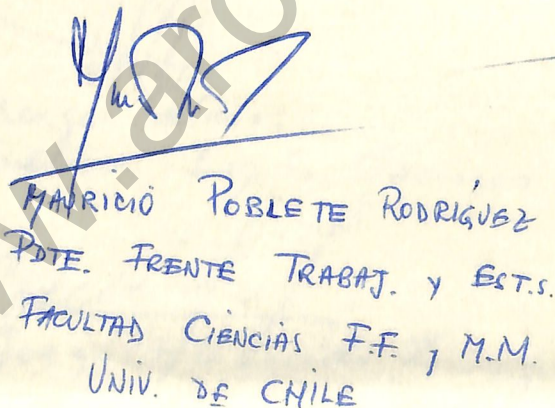 MAURICIO POBLETE RODRÍGUEZ
PDTE. FRENTE TRABAJ. y EST.S.
FACULTAD CIENCIAS F.F. y M.M.
UNIV. DE CHILE